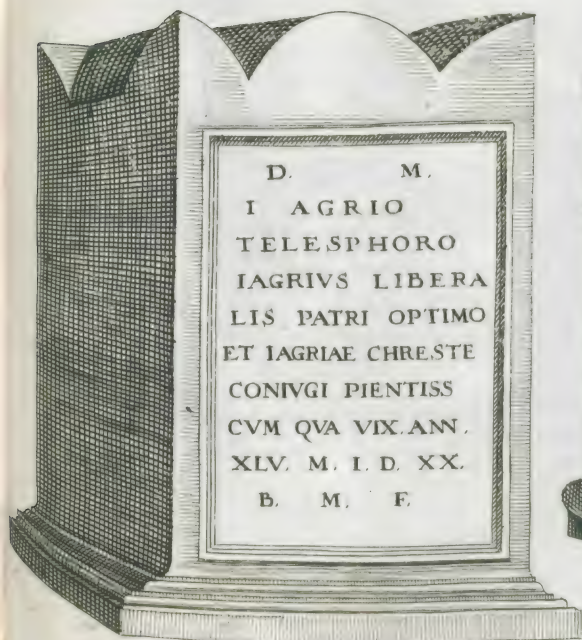 D. M.
I AGRIO
TELESPHORO
IAGRIVS LIBERA
LIS PATRI OPTIMO
ET IAGRIAE CHRESTE
CONIVGI PIENTISS
CVM QVA VIX. ANN.
XLV. M. I. D. XX.
B. M. F.